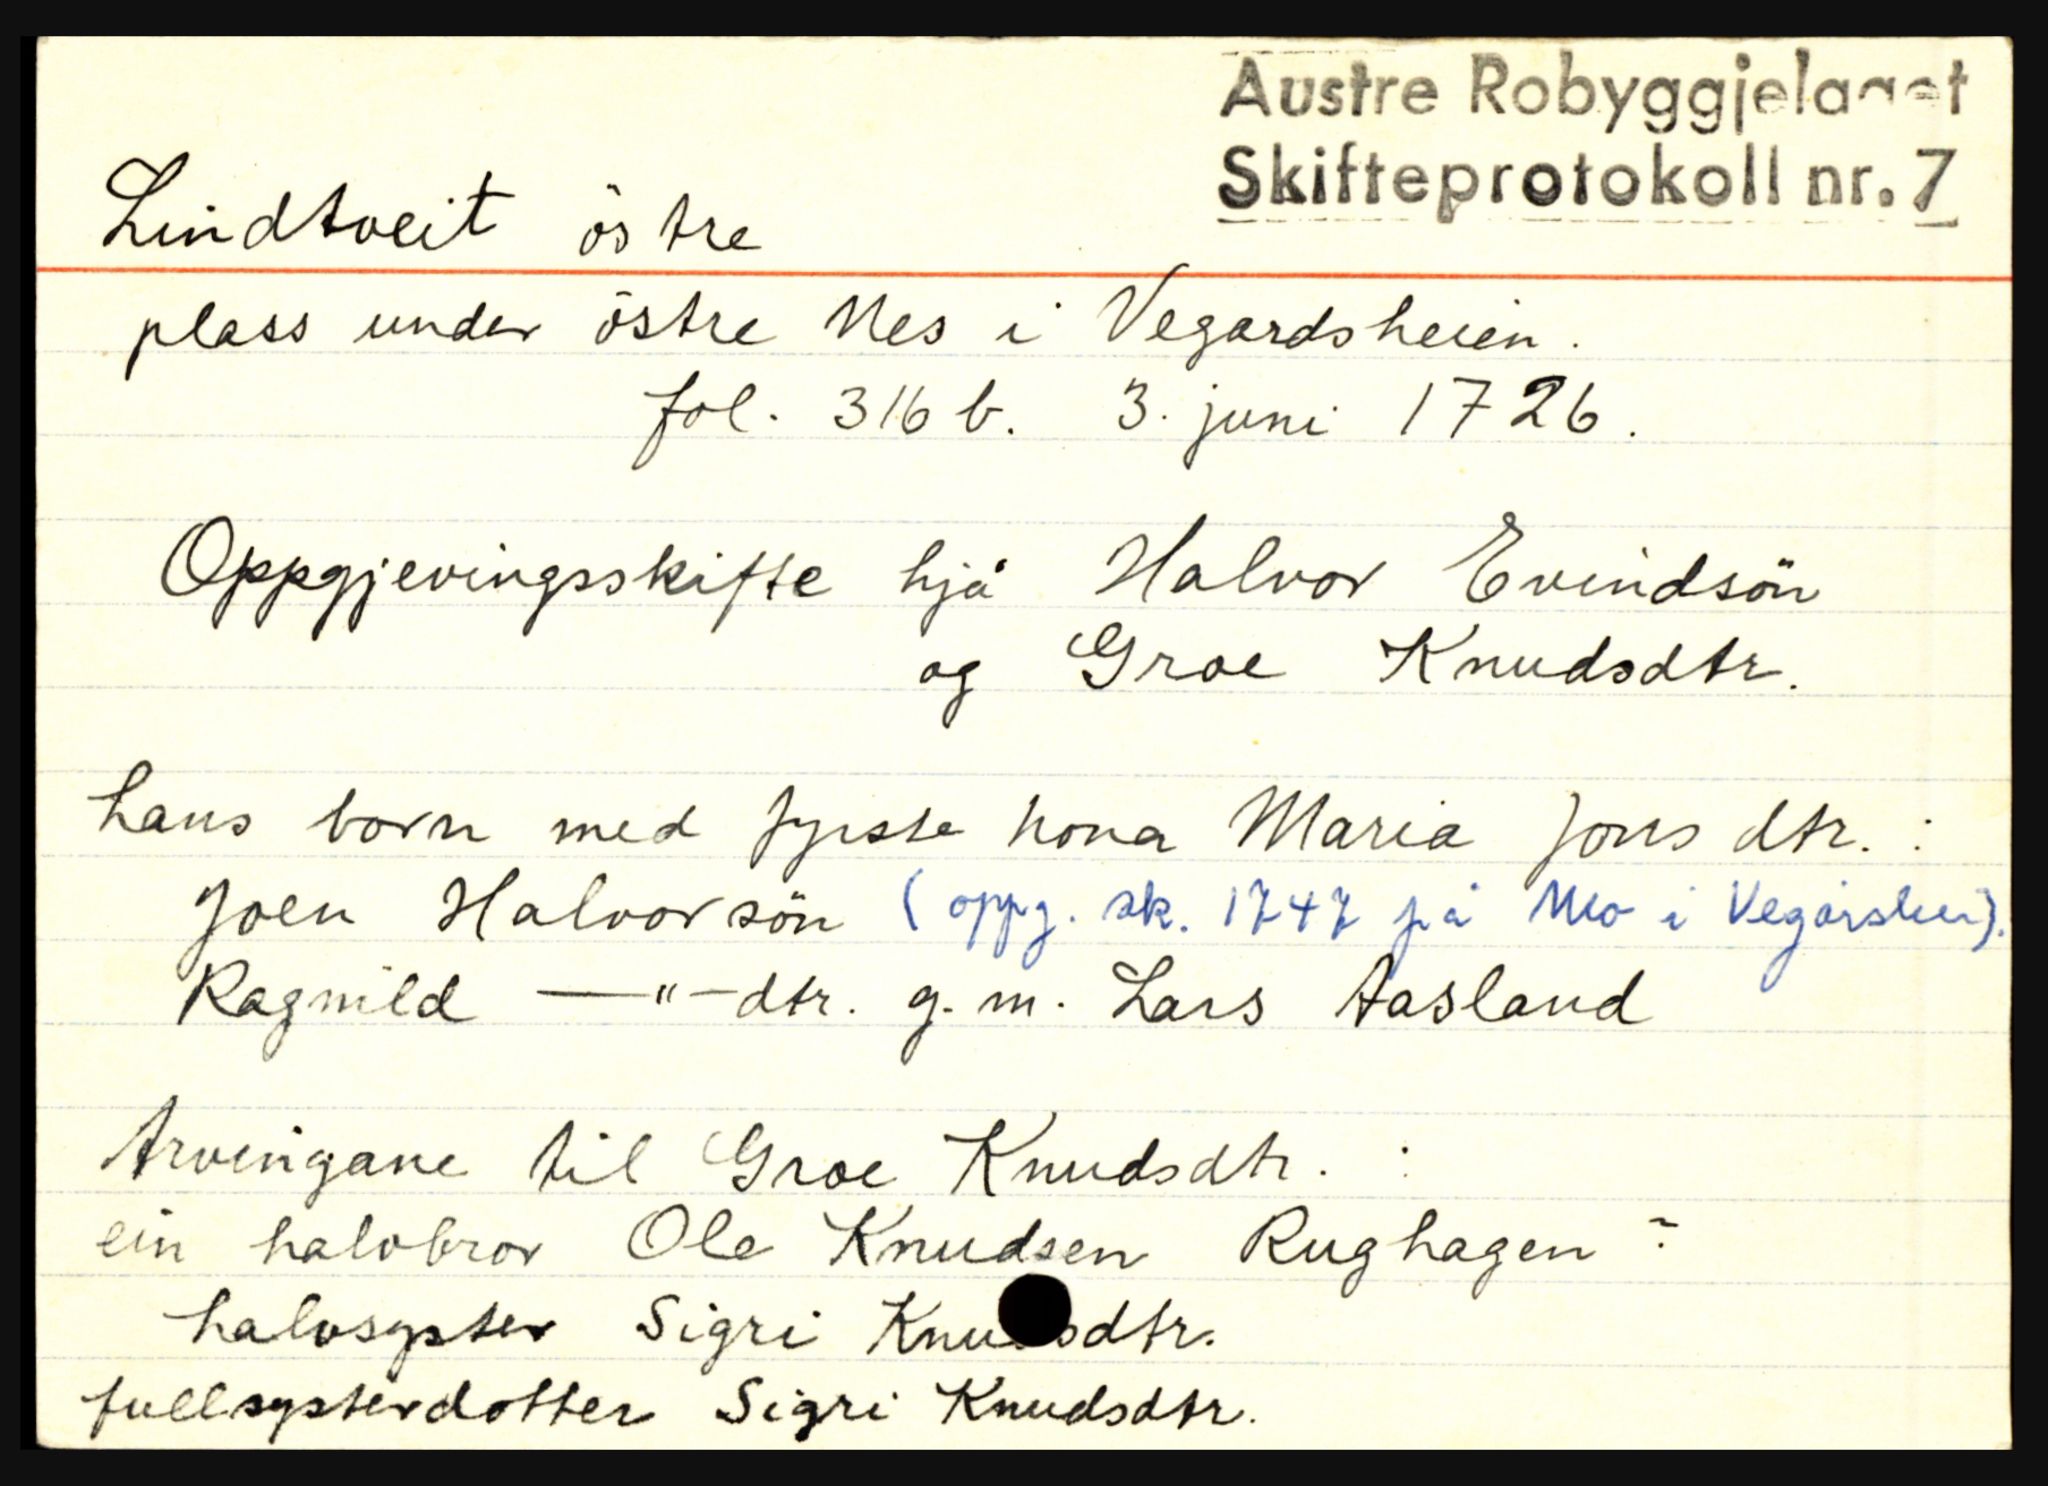 Austre Robyggjelaget
Skifteprotokoll nr. 7
Lindtveit östre
plass under östre Nes i Vegardsheien.
fol. 316 b. 3. juni 1726.
Oppgjevingsskifte hjå Halvor Evindsön
og Groe Knudsdtr.
hans born med fyrste kona Maria Jons dtr. :
Joen Halvorsön (oppg. sk. 1747 på Mo i Vegårshei).
Ragnild —"— dtr. g. m. Lars Aasland
Arvingane til Groe Knudsdtr. :
ein halvbror Ole Knudsen Rughagen ?
halvsyster Sigri Knudsdtr.
fullsysterdotter Sigri Knudsdtr.